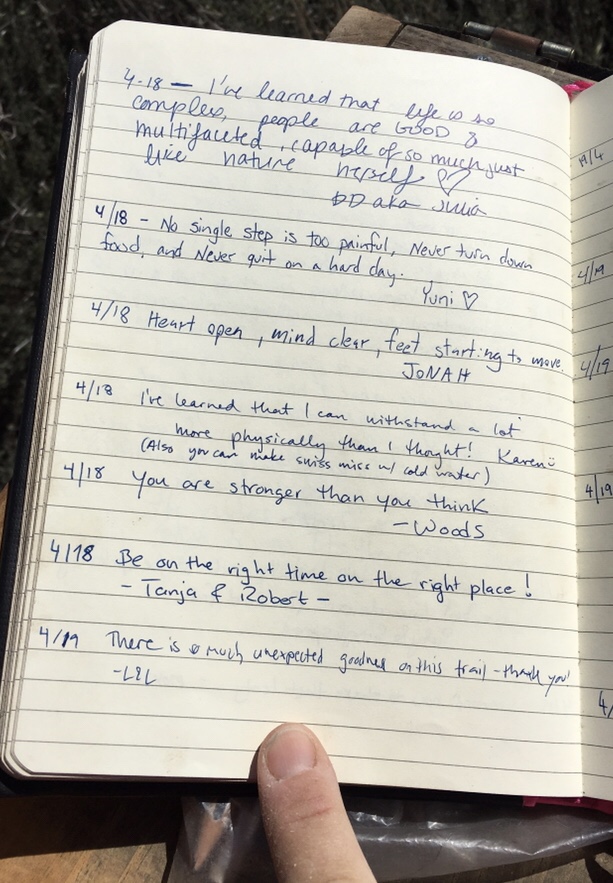 4-18 — I've learned that life is so
complex, people are GOOD &
multifaceted, capable of so much just
like nature herself ♡
DD aka Julia
4/18 - No single step is too painful, Never turn down
food, and Never quit on a hard day.
Yuni ♡
4/18 Heart open, mind clear, feet starting to move.
JONAH
4/18 I've learned that I can withstand a lot
more physically than I thought! Karen
(Also you can make swiss miss w/ cold water)
4/18 You are stronger than you think
- Woods
4/18 Be on the right time on the right place!
- Tanja & Robert -
4/19 There is so much unexpected goodness on this trail - thank you!
- LIL
4/19
4/19
4/19
4/